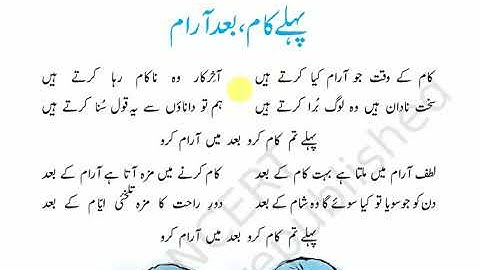 پہلے کام، بعد آرام
کام کے وقت جو آرام کیا کرتے ہیں آخرکار وہ ناکام رہا کرتے ہیں
سخت نادان ہیں وہ لوگ بُرا کرتے ہیں ہم تو داناؤں سے یہ قول سُنا کرتے ہیں
پہلے تم کام کرو بعد میں آرام کرو
لطف آرام میں ملتا ہے بہت کام کے بعد کام کرنے میں مزہ آتا ہے آرام کے بعد
دن کو جو سویا تو کیا سوئے گا وہ شام کے بعد دورِ راحت کا مزہ تلخیٔ ایّام کے بعد
پہلے تم کام کرو بعد میں آرام کرو
NCERT
republished